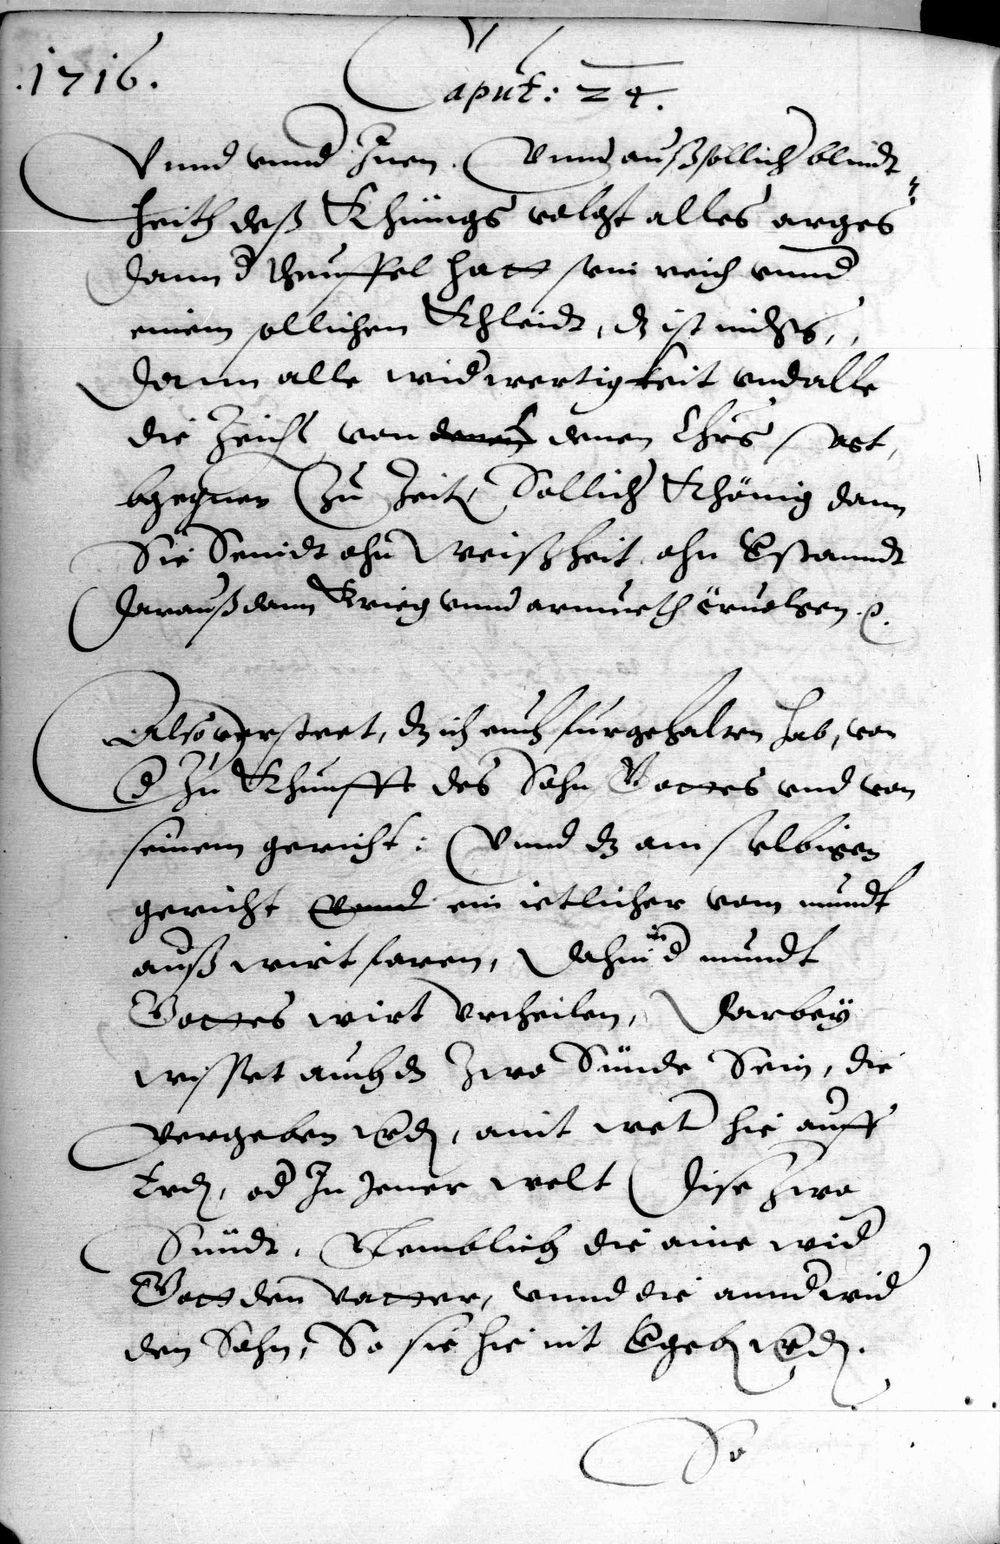 .1716.
Caput: 24.
Vnnd vnnd Inen. Vnnd auß sollicher blindt=
heith deß Khünigs volgt alles arges
dann d Theuffel hatt sein reich vnnd
einem sollichen Khleidt, dz ist nichts,
dann alle widwertigkeit vnd alle
die Zeichen von denen denen Chrs sagt,
begegnen Zu Zeiten Sollicher Khönig dann
Sie Seindt ohn Weißheit ohn Vstanndt
darauß dann Krieg vnnd armueth eruolgen.

Also versteet, dz ich euch furgehalten hab, von
d Zu Khunfft des Sohn Gottes vnd von
seinem gericht: Vnnd dz am selbigen
gericht Vnnd ein ietlicher vom mundt
auß wirt faren, dahin in d mundt
Gottes wirt Vrtheilen, Darbey
wisset auch dz Zwo Sünde Sein, die
vergeben wden, aint wet hie auff
Erden, od In Jener welt Dise Zwo
Sündt, Nemblich die aine wid
Gott den vatter, vnnd die annd wid
den Sohn, So sie hie nit Vgeben wden.
So